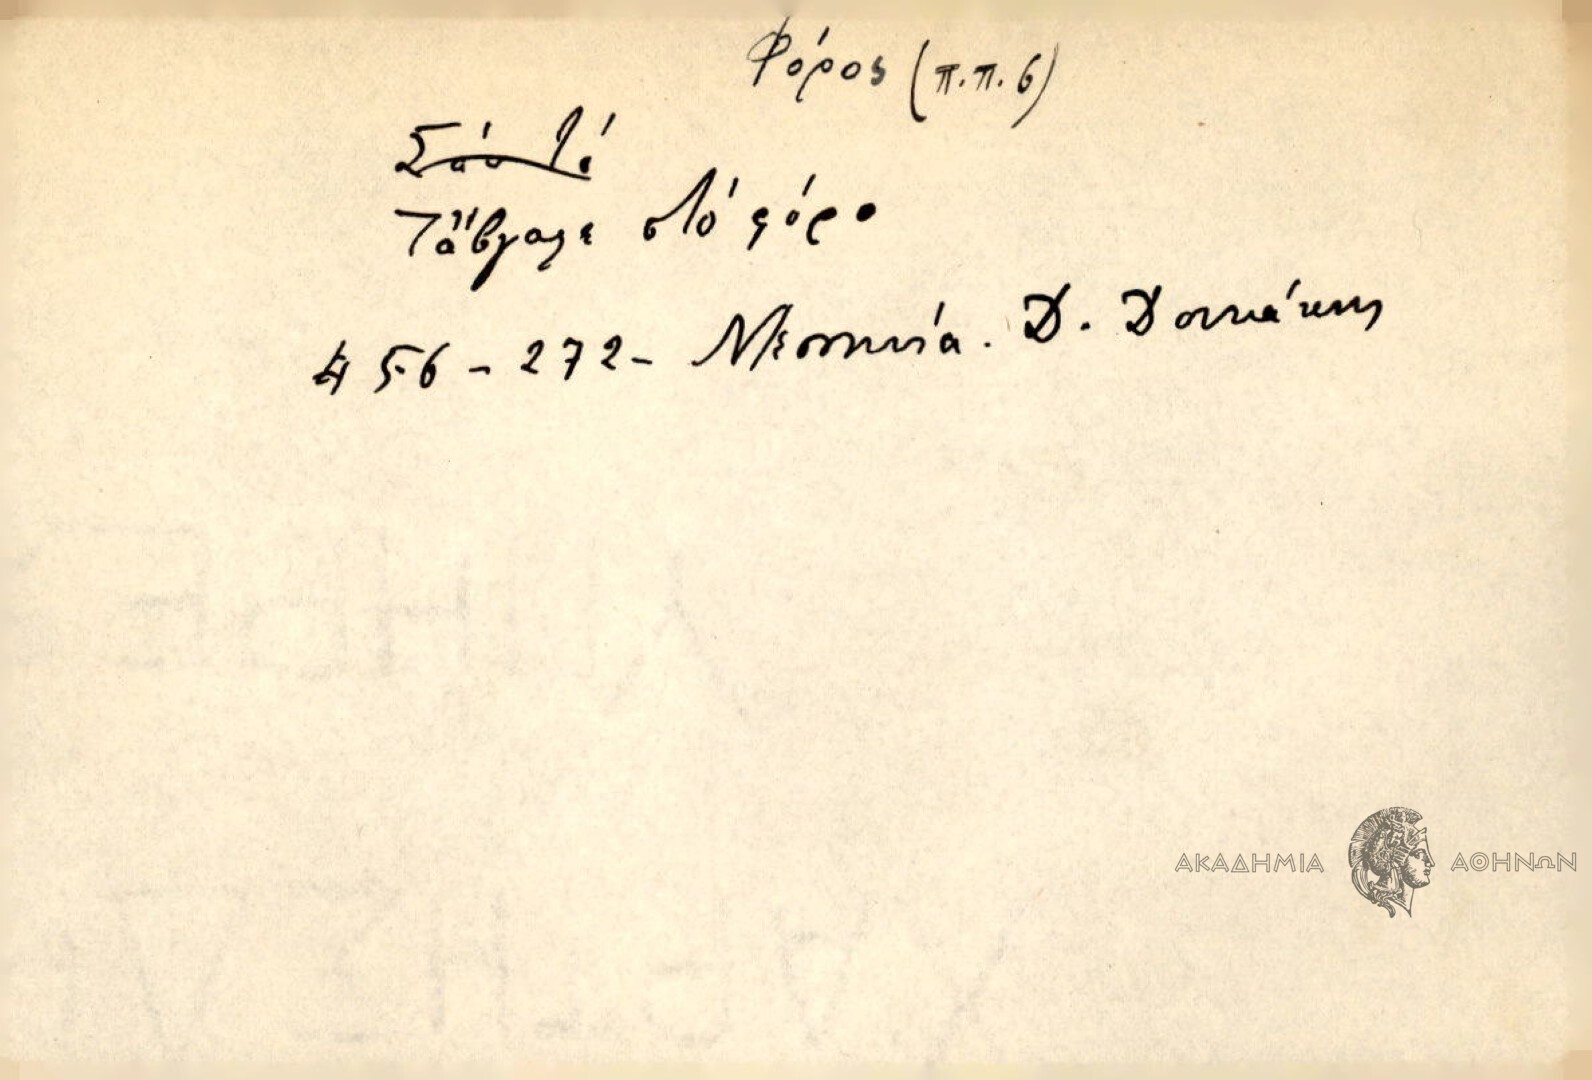 Φόρος (π.π. 6)
Τἄβγαλε στό φόρο
456-272- Μεσσηνία. Δ. Δουκάκης
ΑΚΑΔΗΜΙΑ ΑΘΗΝΩΝ